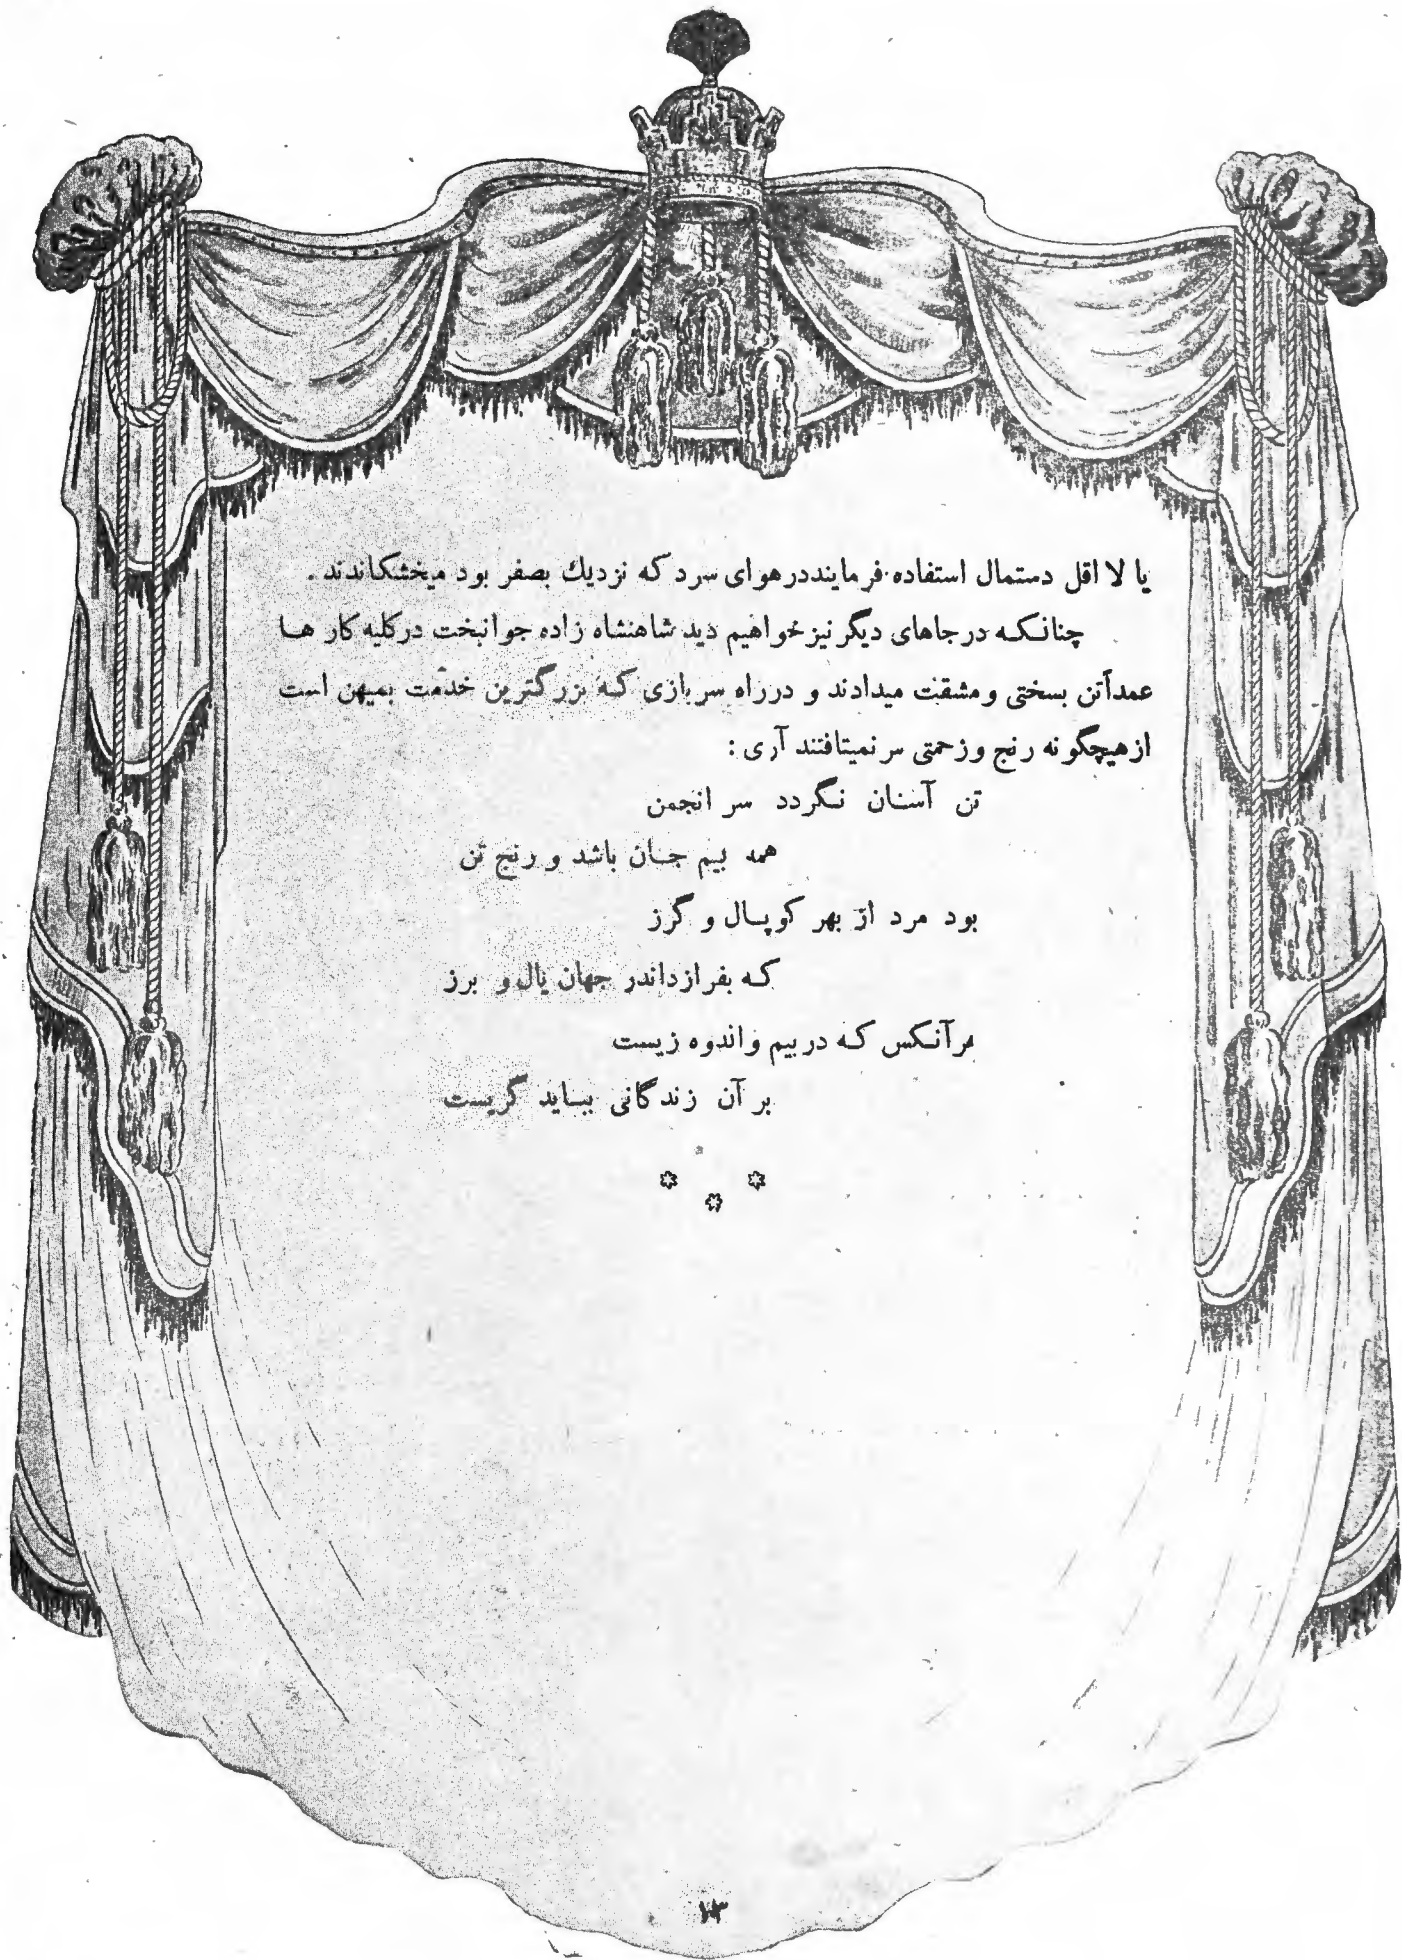 یا لا اقل دستمال استفاده فرمایند در هوای سرد که نزدیك بصفر بود میخشکاندند .
چنانکه در جاهای دیگر نیز خواهیم دید شاهنشاه زاده جوانبخت در کلیه کار ها
عمداً تن بسختی و مشقت میدادند و در راه سربازی که بزرگترین خدمت بمیهن است
از هیچگونه رنج و زحمتی سر نمیتافتند آری :
تن آسان نگردد سر انجمن
همه بیم جان باشد و رنج تن
بود مرد از بهر کوپال و گرز
که بفرازد اندر جهان یال و برز
هر آنکس که در بیم و اندوه زیست
بر آن زندگانی بباید گریست
۱۳